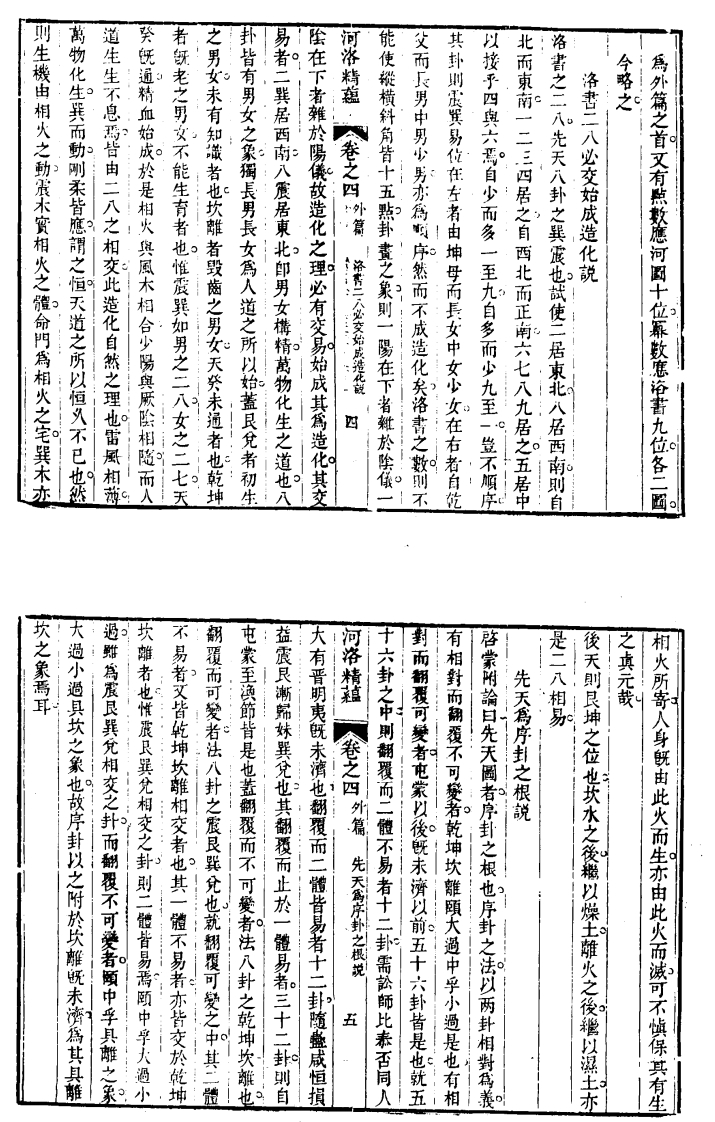 爲外篇之首又有點數應河圖十位冪數應洛書九位各二圖
今略之
洛書二八必交始成造化說
洛書之二八先天八卦之巽震也試使二居東北八居西南則自
北而東南一二三四居之自西北而正南六七八九居之五居中
以接乎四與六焉自少而多一至九自多而少九至一豈不順序
其卦則震巽易位在左者由坤母而長女中女少女在右者自乾
父而長男中男少男亦爲順序然而不成造化矣洛書之數則不
能使縱橫斜角皆十五點卦畫之象則一陽在下者雜於陰儀一
河洛精蘊 卷之四 外篇 洛書二八必交始成造化說 四
陰在下者雜於陽儀故造化之理必有交易始成其爲造化其交
易者二巽居西南八震居東北卽男女構精萬物化生之道也八
卦皆有男女之象獨長男長女爲人道之所以始蓋艮兌者初生
之男女未有知識者也坎離者毀齒之男女天癸未通者也乾坤
者旣老之男女不能生育者也惟震巽如男之二八女之二七天
癸旣通精血始成於是相火與風木相合少陽與厥陰相隨而人
道生生不息焉皆由二八之相交此造化自然之理也雷風相薄
萬物化生巽而動剛柔皆應謂之恒天道之所以恒久不已也然
則生機由相火之動震木實相火之體命門爲相火之宅巽木亦
相火所寄人身旣由此火而生亦由此火而滅可不愼保其有生
之眞元哉
後天則艮坤之位也坎水之後繼以燥土離火之後繼以濕土亦
是二八相易
先天爲序卦之根說
啓蒙附論曰先天圖者序卦之根也序卦之法以兩卦相對爲義
有相對而翻覆不可變者乾坤坎離頤大過中孚小過是也有相
對而翻覆可變者屯蒙以後旣未濟以前五十六卦皆是也就五
十六卦之中則翻覆而二體不易者十二卦需訟師比泰否同人
河洛精蘊 卷之四 外篇 先天爲序卦之根說 五
大有晋明夷旣未濟也翻覆而二體皆易者十二卦隨蠱咸恒損
益震艮漸歸妹巽兌也其翻覆而止於一體易者三十二卦則自
屯蒙至渙節皆是也蓋翻覆而不可變者法八卦之乾坤坎離也
翻覆而可變者法八卦之震艮巽兌也就翻覆可變之中其二體
不易者又皆乾坤坎離相交者也其一體不易者亦皆交於乾坤
坎離者也惟震艮巽兌相交之卦則二體皆易焉頤中孚大過小
過雖爲震艮巽兌相交之卦而翻覆不可變者頤中孚具離之象
大過小過具坎之象也故序卦以之附於坎離旣未濟爲其具離
坎之象焉耳